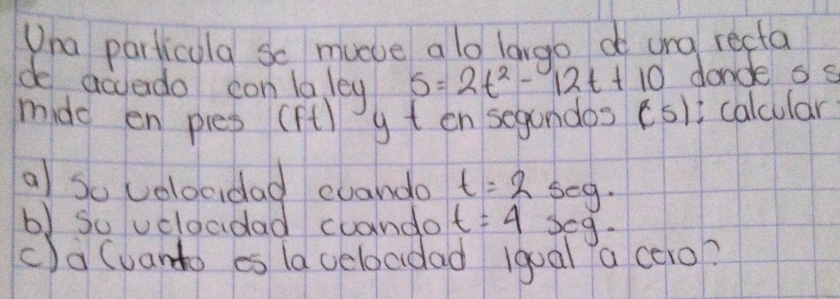 Una particula se mueve a lo largo de una recta
de acuerdo con la ley s = 2t² - 12t + 10 donde s s
mide en pies (ft) y t en segundos (s): calcular
a) Su velocidad cuando t = 2 seg.
b) Su velocidad cuando t = 4 seg.
c) ¿Cuanto es la velocidad igual a cero?